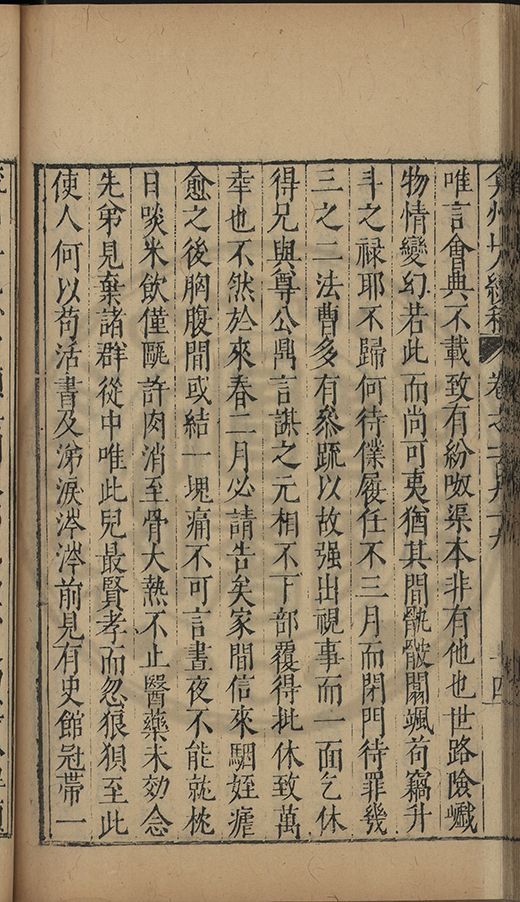 弇州山人續稿 卷之一百 十四
唯言會典不載致有紛呶渠本非有他也世路險巇
物情變幻若此而尚可夷猶其間骩骳闒颯苟竊升
斗之祿耶不歸何待僕履任不三月而閉門待罪幾
三之二法曹多有參疏以故强出視事而一面乞休
得兄與尊公鼎言諆之元相不下部覆得批休致萬
幸也不然於來春二月必請告矣家間信來駰姪瘧
愈之後胸腹間或結一塊痛不可言晝夜不能就枕
日啖米飲僅甌許肉消至骨大熱不止醫藥未効念
先弟見棄諸群從中唯此兒最賢孝而忽狼狽至此
使人何以苟活書及涕淚涔涔前見有史館冠帶一